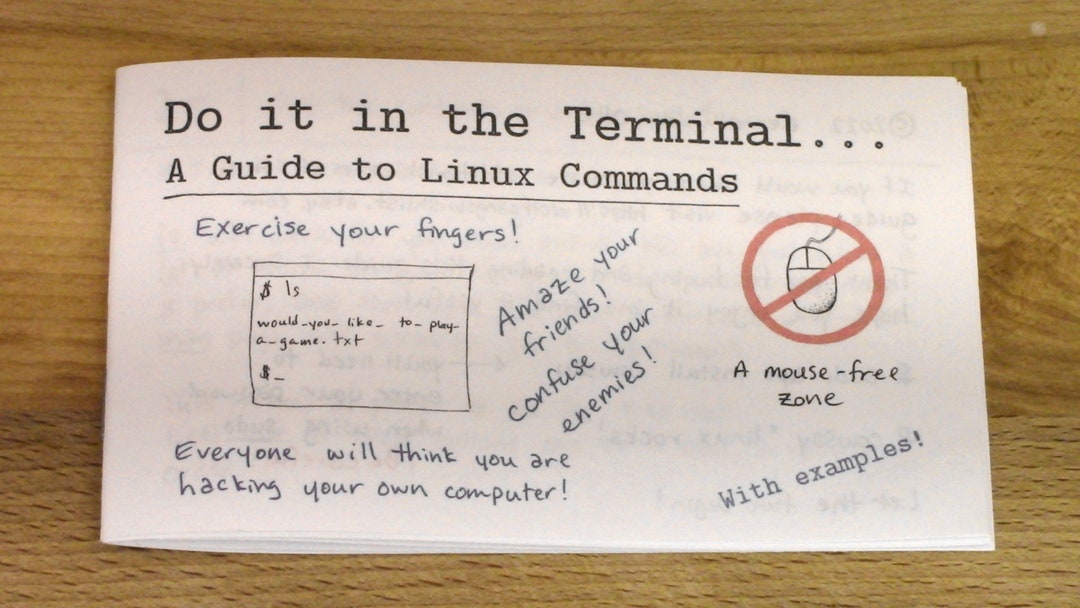 Do it in the Terminal...
A Guide to Linux Commands
Exercise your fingers!
$ ls
would-you-like-to-play-
a-game.txt
$_
Amaze your
friends!
confuse your
enemies!
A mouse-free
zone
Everyone will think you are
hacking your own computer!
With examples!